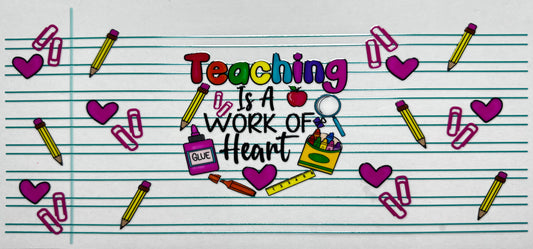 Teaching
Is A
WORK OF
Heart
GLUE